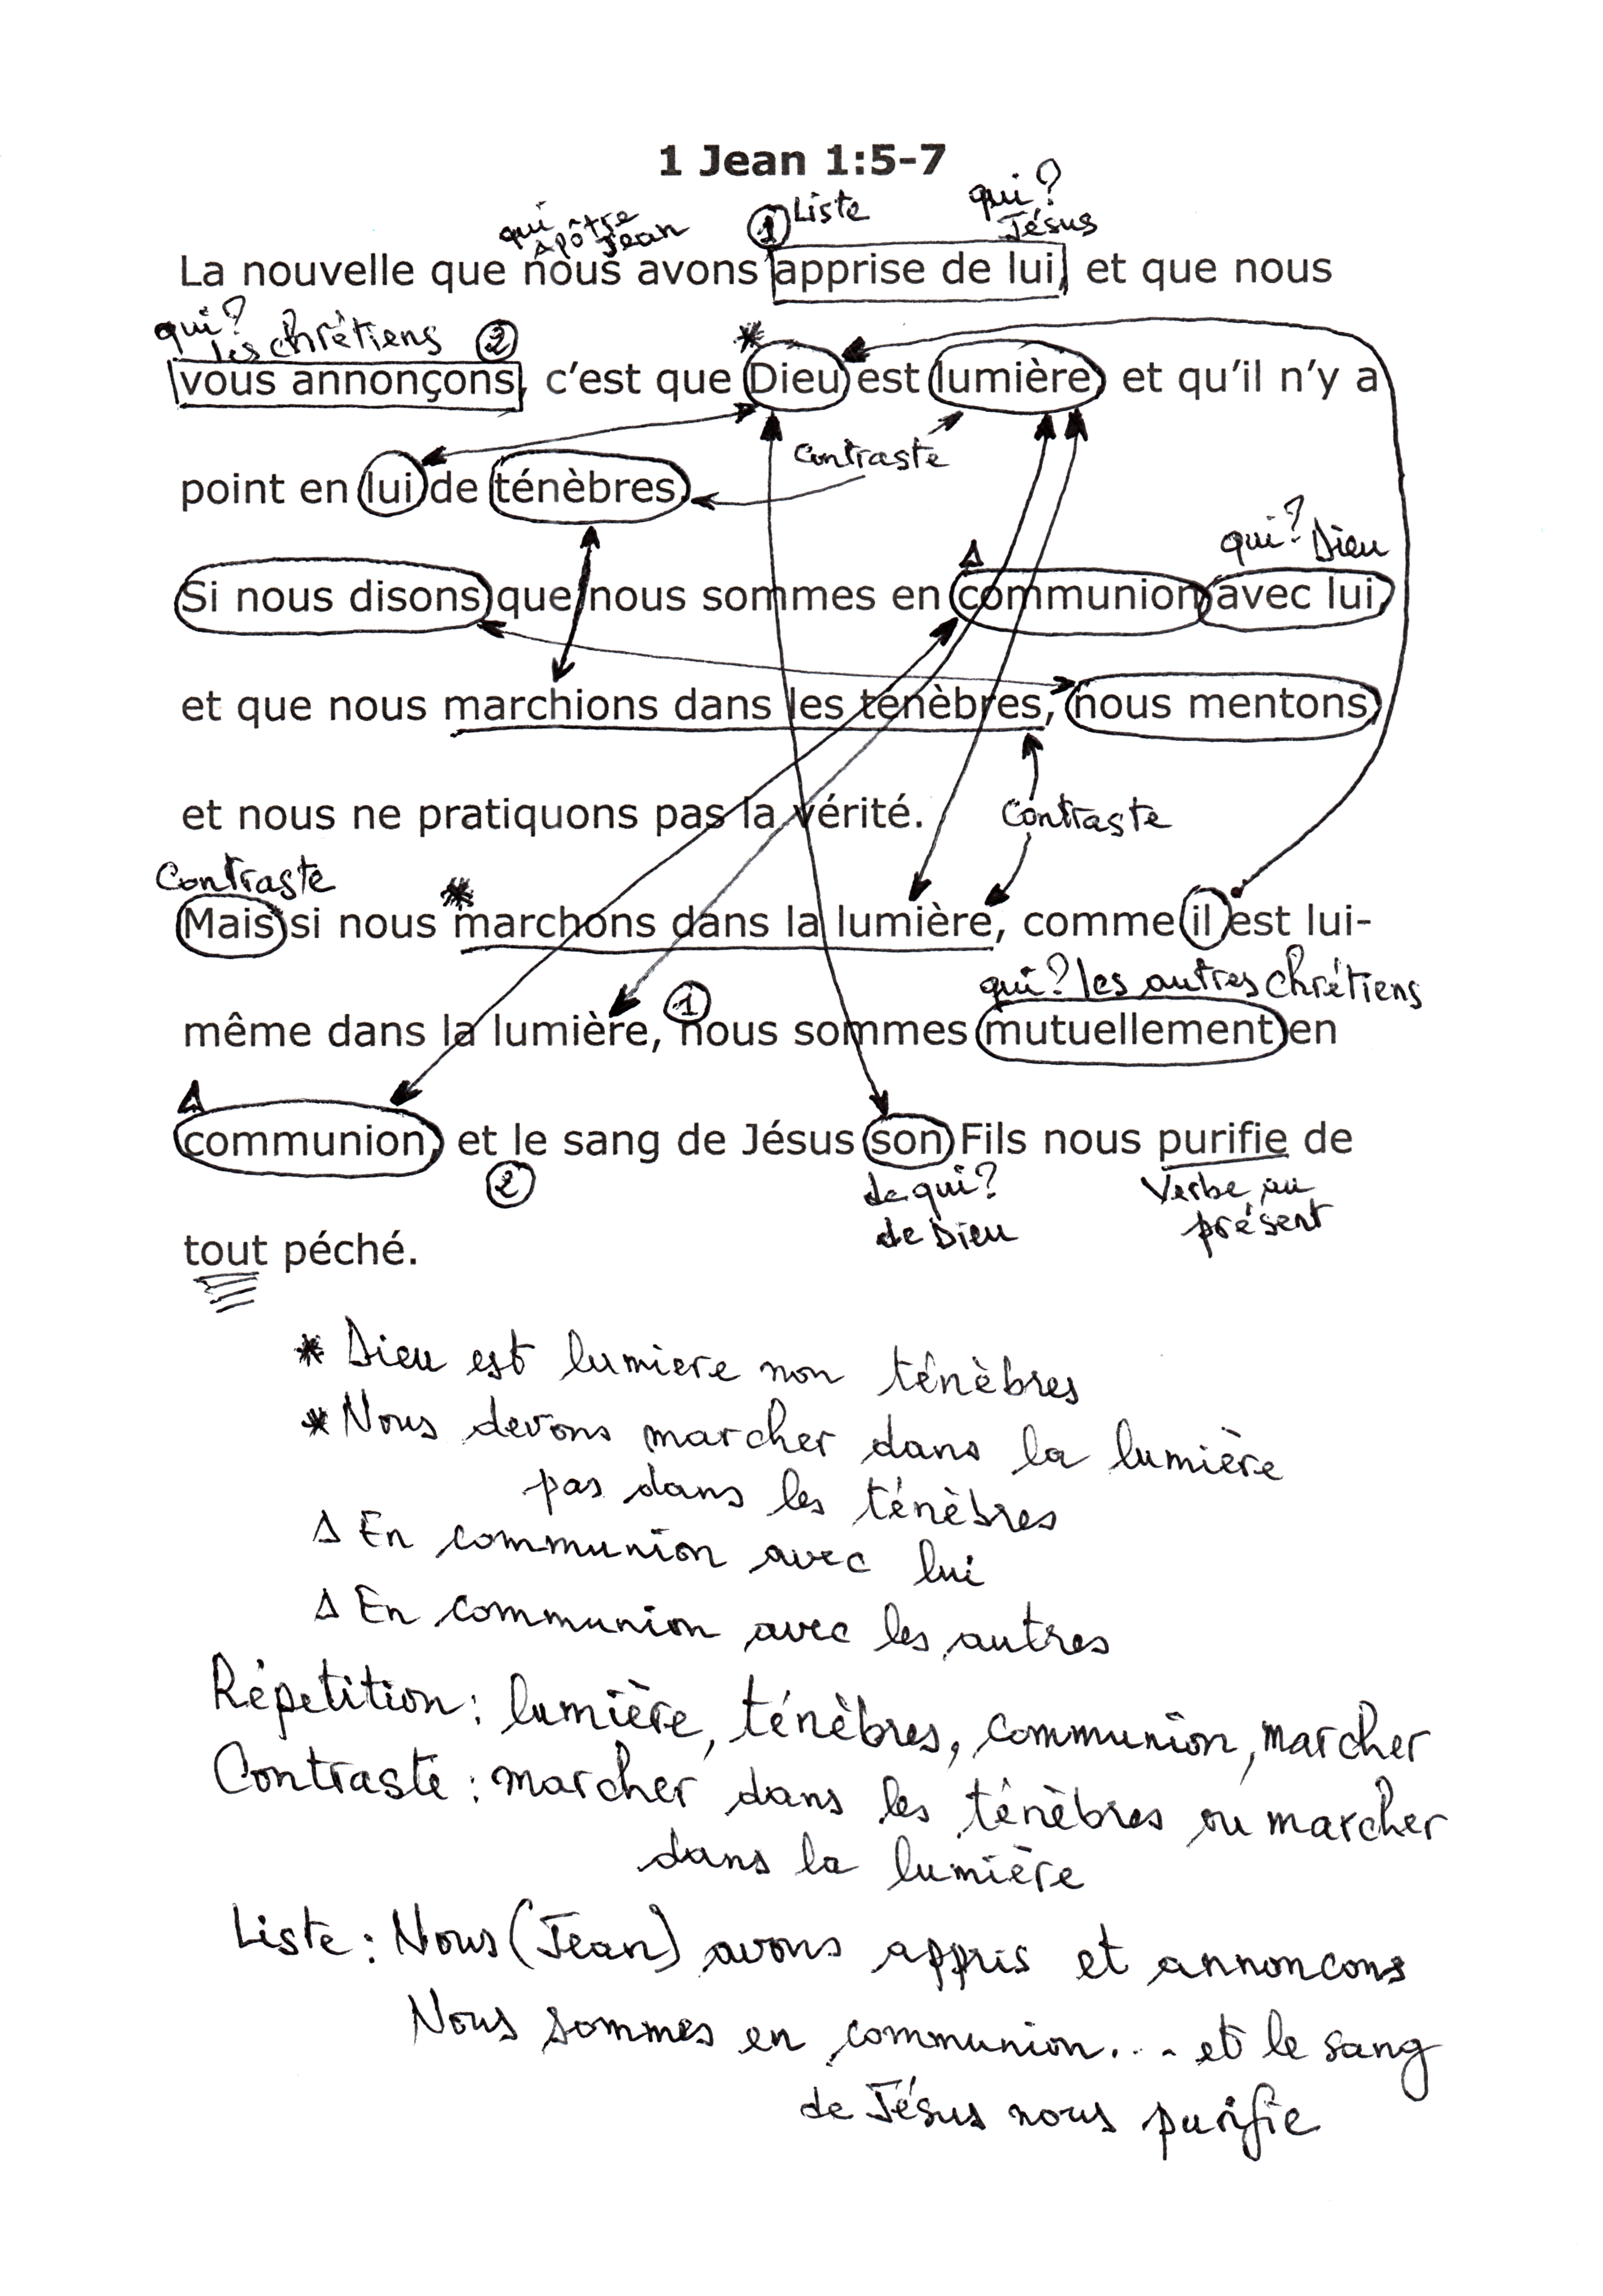 1 Jean 1:5-7
qui?
① Liste
qui Apôtre Jésus
Jean
La nouvelle que nous avons apprise de lui, et que nous
qui?
les chrétiens ② *
vous annonçons, c’est que Dieu est lumière, et qu’il n’y a
Contraste
point en lui de ténèbres.
qui? Dieu
Δ
Si nous disons que nous sommes en communion avec lui,
et que nous marchions dans les ténèbres, nous mentons,
et nous ne pratiquons pas la vérité. Contraste
Contraste *
Mais si nous marchons dans la lumière, comme il est lui-
qui? les autres chrétiens
①
même dans la lumière, nous sommes mutuellement en
Δ
communion, et le sang de Jésus son Fils nous purifie de
② de qui? Verbe au
de Dieu présent
tout péché.
* Dieu est lumiere non ténèbres
* Nous devons marcher dans la lumière
pas dans les ténèbres
Δ En communion avec lui
Δ En communion avec les autres
Répetition : lumière, ténèbres, communion, marcher
Contraste : marcher dans les ténèbres ou marcher
dans la lumière
Liste : Nous (Jean) avons appris et annoncons
Nous sommes en communion... et le sang
de Jésus nous purifie